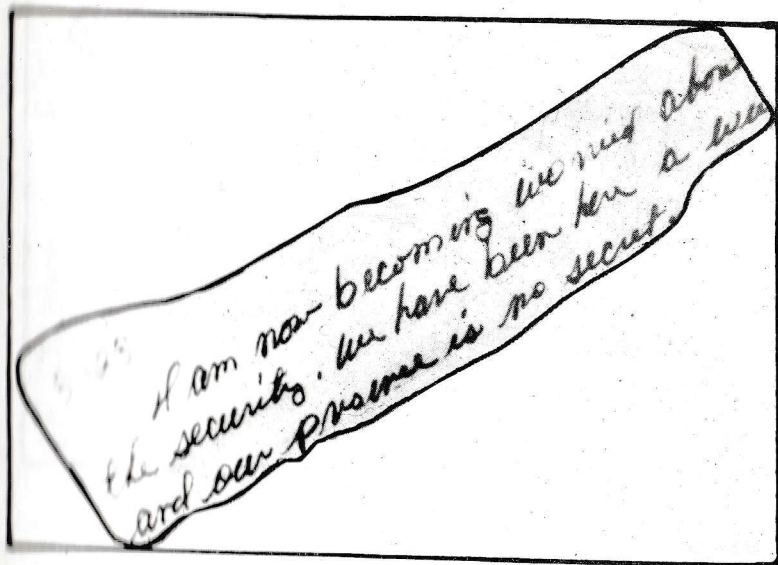 I am now becoming worried about
the security. We have been here a week
and our presence is no secret.